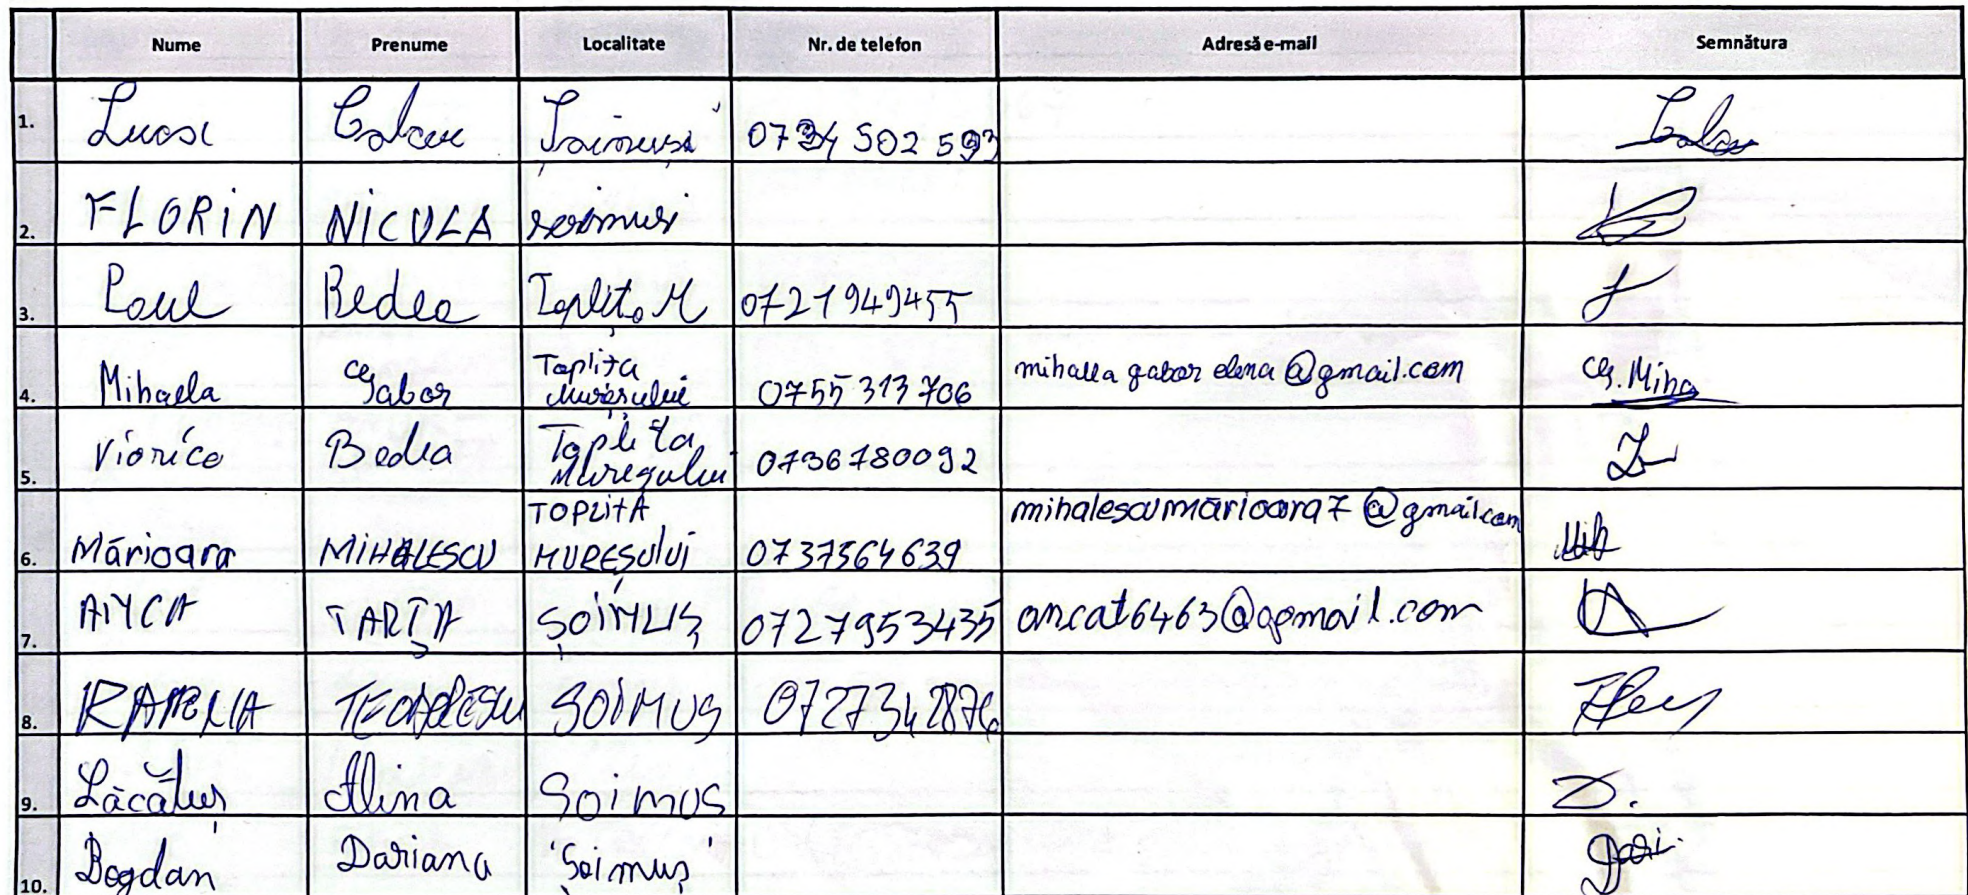 Nume Prenume Localitate Nr. de telefon Adresă e-mail Semnătura
1. 502 593
2. FLORIN NICULA
3. Paul Bedea Toplița M 0721949455
4. Mihaela Gabor Toplița Mureșului 0755 313 706 mihaela gabor elena @gmail.com G. Miha
5. Viorica Bedea Toplița 0736780092
6. Mărioara MIHALESCU TOPLITA MUREȘULUI 0737564639 mihalescumărioara7@gmail.com
7. ANCA ȘOIMUȘ 0727953435 ancat6463@gmail.com
8. SOIMUȘ
9. Lăcătuș Alina Soimus D.
10. Bogdan Dariana Șoimuș Dari